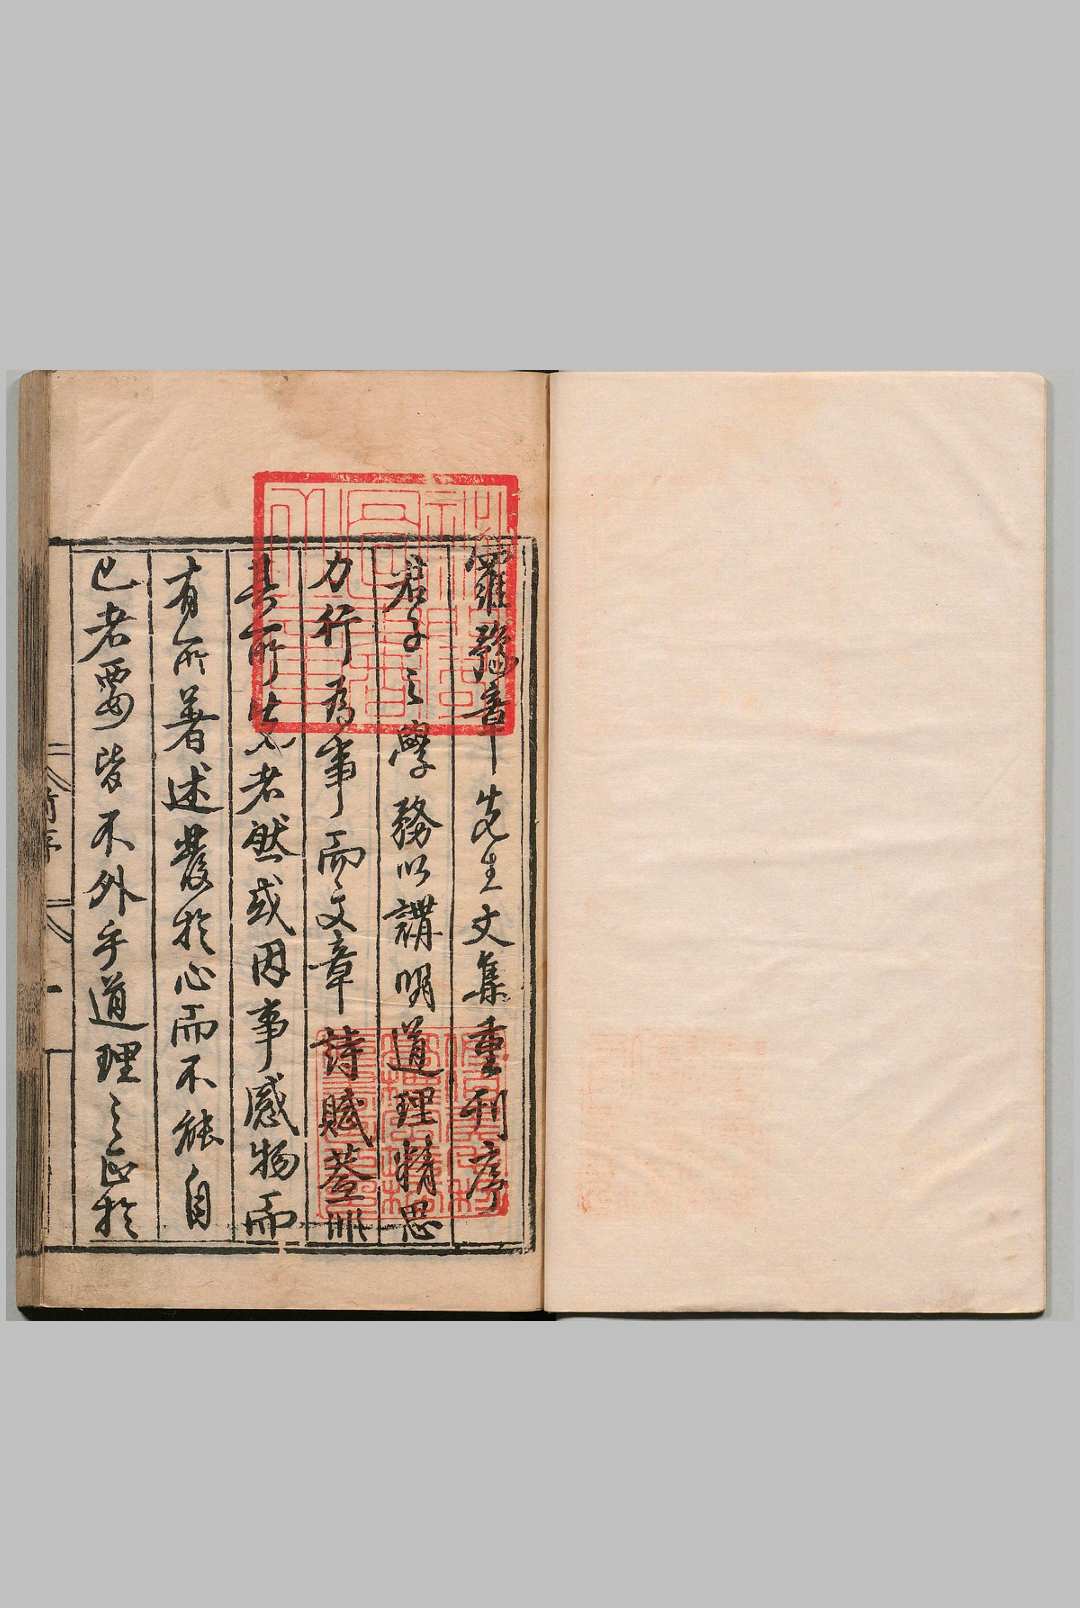 羅豫章先生文集重刊序
君子之學務以講明道理精思
力行為事而文章詩賦蓋非
其所先者然或因事感物而
有所著述發於心而不能自
已者要皆不外乎道理之正於
序
一